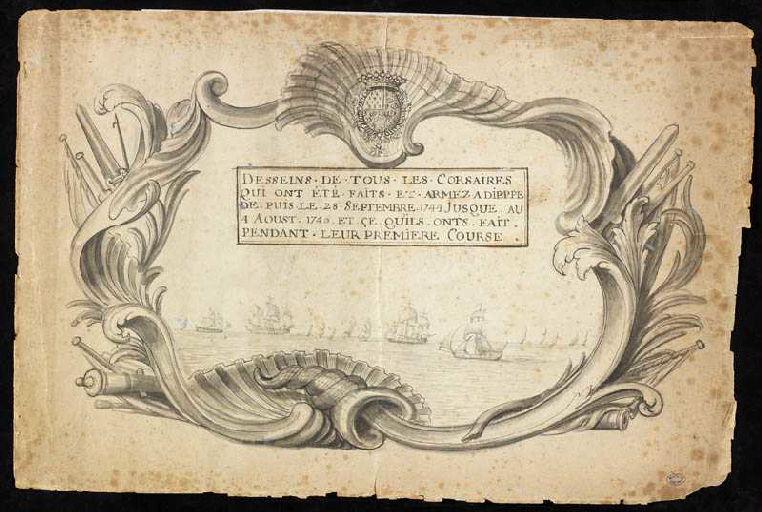 DESSEINS · DE · TOUS · LES · CORSAIRES
QUI ONT ÉTÉ · FAITS · ET · ARMEZ A DIEPPE
DE · PUIS · LE · 28 SEPTEMBRE · 1744 JUSQUE AU
4 AOUST · 1745 · ET CE QUILS ONTS FAIT ·
PENDANT · LEUR PREMIERE COURSE ·